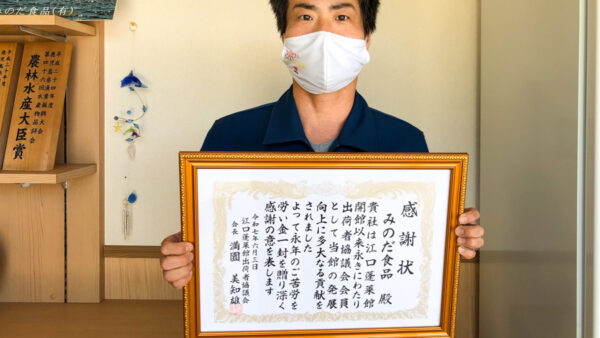 みのだ食品(有)
農林水産大臣賞
感謝状
みのだ食品 殿
貴社は江口蓬莱館
開館以来永きにわたり
出荷者協議会会員
として当館の発展
向上に多大なる貢献を
されました
よって永年のご苦労を
労い金一封を贈り深く
感謝の意を表します
令和七年六月三日
江口蓬莱館出荷者協議会
会長 満園 美知雄